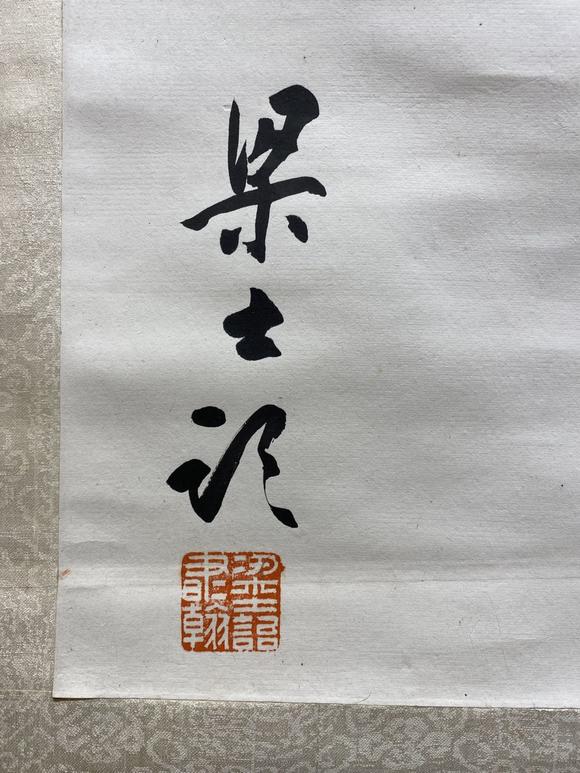 梁士詒
梁士詒
翰